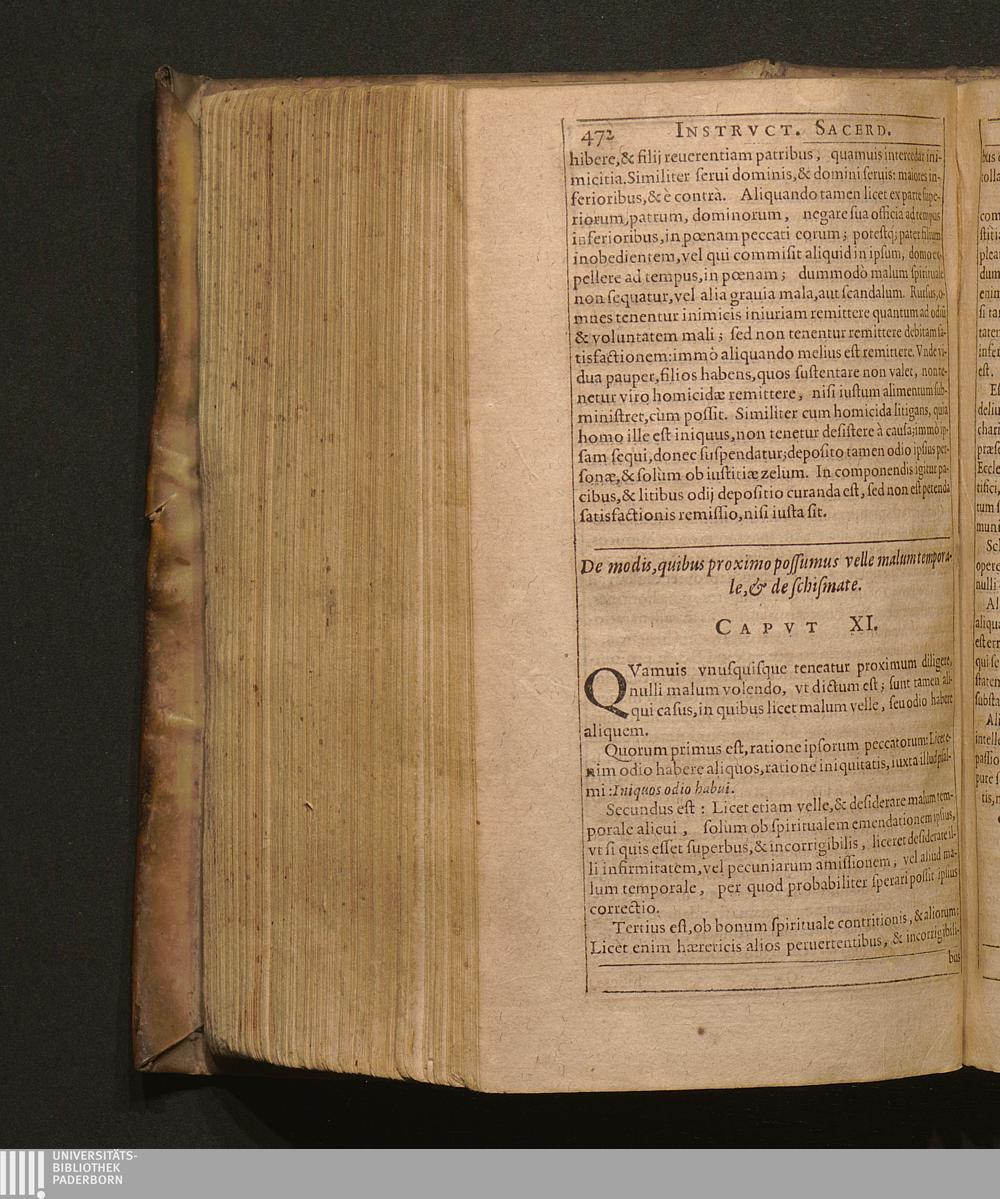 472 INSTRVCT. SACERD.
hibere,& filij reuerentiam patribus, quamuis intercedat ini-
micitia.Similiter ſerui dominis,& domini ſeruis: maiores in-
ferioribus,& è contrà. Aliquando tamen licet ex parte ſupe-
riorum,patrum, dominorum, negare ſua officia ad tempus
inferioribus,in pœnam peccati eorum; poteſtq; pater filium
inobedientem,vel qui commiſit aliquid in ipſum, domo ex-
pellere ad tempus,in pœnam; dummodò malum ſpirituale
non ſequatur,vel alia grauia mala,aut ſcandalum. Rurſus,o-
mnes tenentur inimicis iniuriam remittere quantum ad odiũ
& voluntatem mali; ſed non tenentur remittere debitam ſa-
tisfactionem:immò aliquando melius eſt remittere. Vnde vi-
dua pauper,filios habens,quos ſuſtentare non valet, non te-
netur viro homicidæ remittere, niſi iuſtum alimentum ſub-
miniſtret,cùm poſſit. Similiter cum homicida litigans, quia
homo ille eſt iniquus,non tenetur deſiſtere à cauſa;immò ip-
ſam ſequi,donec ſuſpendatur;depoſito tamen odio ipſius per-
ſonæ,& ſolùm ob iuſtitiæ zelum. In componendis igitur pa-
cibus,& litibus odij depoſitio curanda eſt, ſed non eſt petenda
ſatisfactionis remiſſio,niſi iuſta ſit.
De modis,quibus proximo poſſumus velle malum tempora-
le,& de ſchiſmate.
CAPVT XI.
QVamuis vnuſquiſque teneatur proximum diligere,
nulli malum volendo, vt dictum eſt; ſunt tamen ali-
qui caſus,in quibus licet malum velle, ſeu odio habere
aliquem.
Quorum primus eſt,ratione ipſorum peccatorum: Licet e-
nim odio habere aliquos,ratione iniquitatis,iuxta illud pſal-
mi:Iniquos odio habui.
Secundus eſt: Licet etiam velle,& deſiderare malum tem-
porale alicui, ſolum ob ſpiritualem emendationem ipſius,
vt ſi quis eſſet ſuperbus,& incorrigibilis, liceret deſiderare il-
li infirmitatem,vel pecuniarum amiſſionem, vel aliud ma-
lum temporale, per quod probabiliter ſperari poſſit ipſius
correctio.
Tertius eſt,ob bonum ſpirituale contritionis,& aliorum:
Licet enim hæreticis alios peruertentibus, & incorrigibili-
bus
UNIVERSITÄTS-
BIBLIOTHEK
PADERBORN